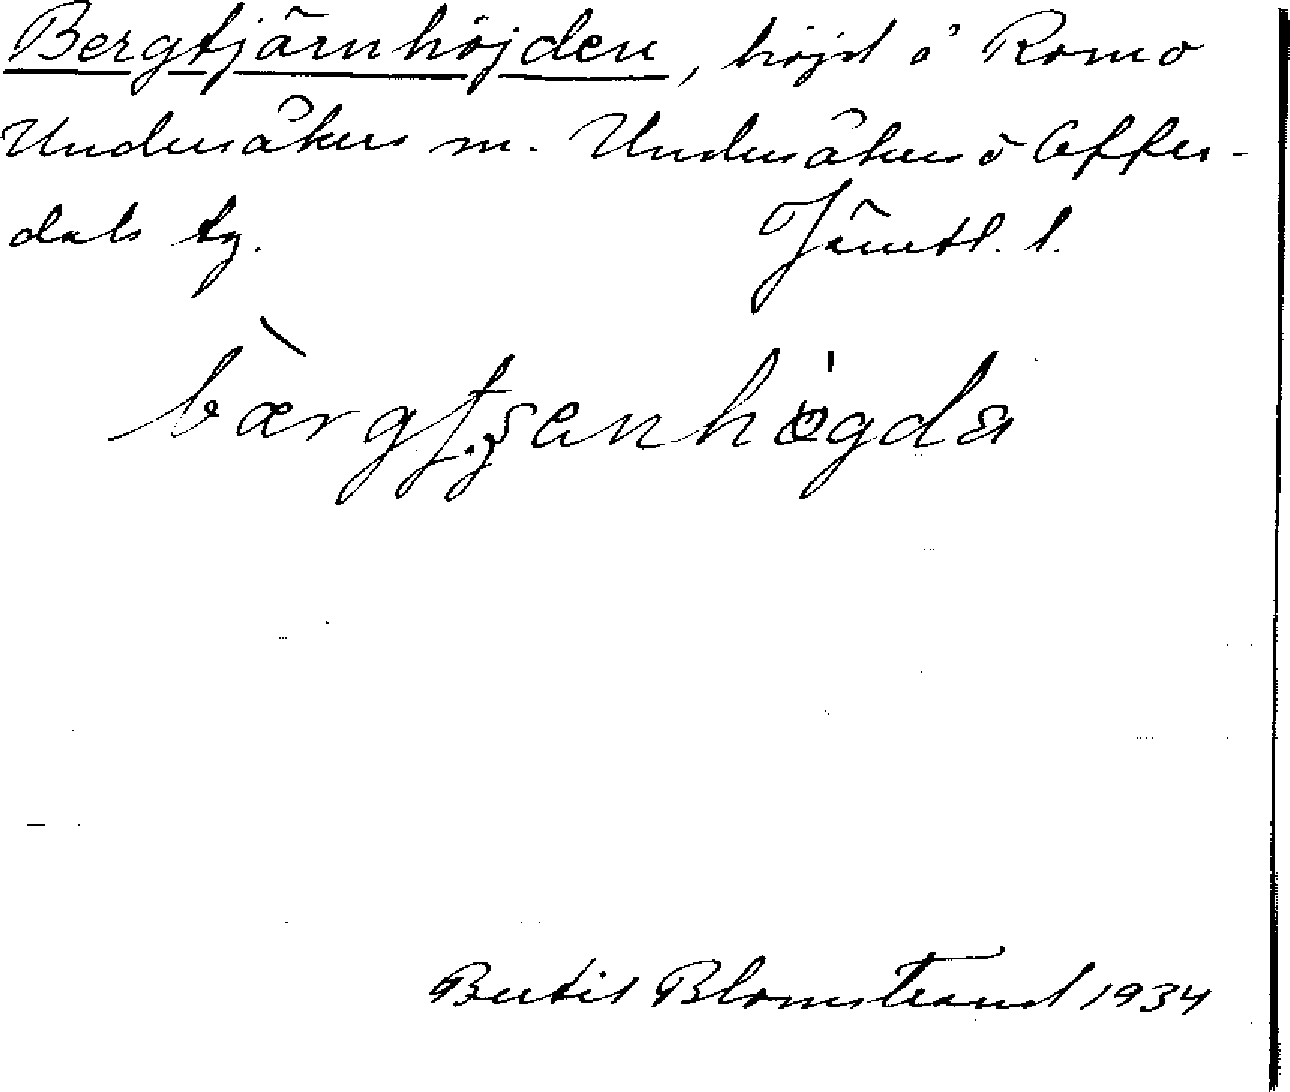 Bergtjärnhöjden, höjd å Romo
Undersåkers m. Undersåkers o Offer-
dals tg. Jämtl. l.
bærgtʂenhøgda
Bertil Blomstrand 1934